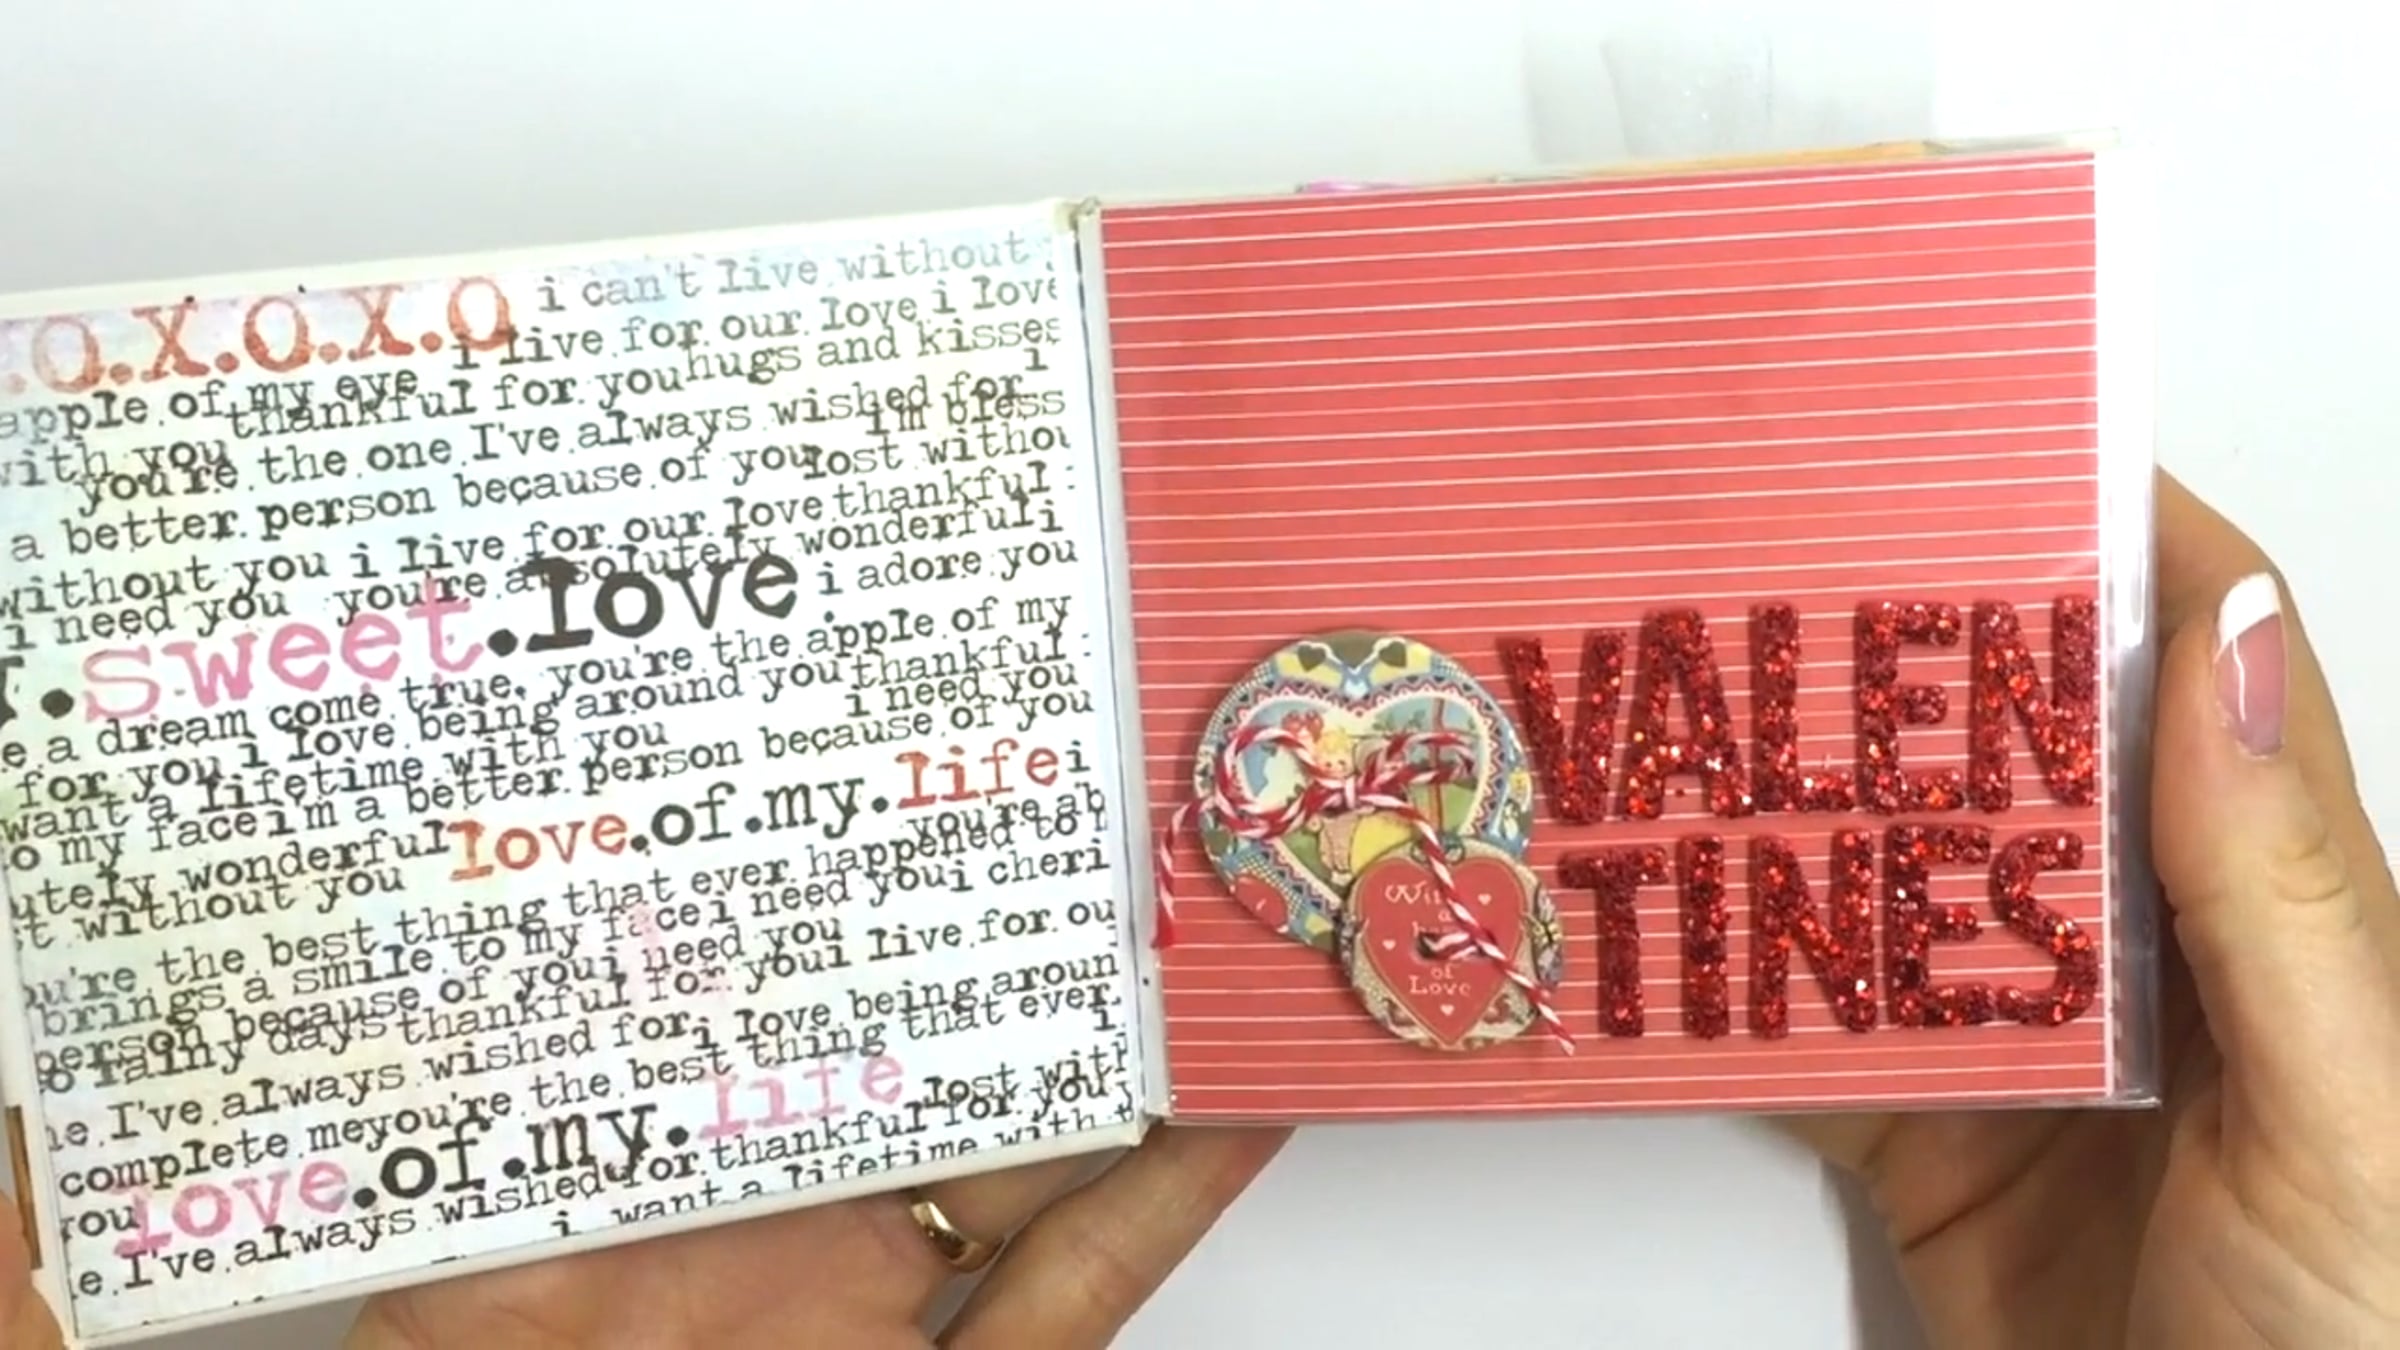 O.X.O.X.O i can't live without
i live for our love i love
apple of my eye thankful for you hugs and kisses
with you you're the one I've always wished for i
i'm bless
a better person because of you lost withou
without you i live for our love thankful
i need you you're absolutely wonderful i
.sweet.love i adore you
e a dream come true, you're the apple of my
for you i love being around you thankful
want a lifetime with you i need you
o my face im a better person because of you
utely wonderful love.of.my.life i
t without you you're ab
u're the best thing that ever happened to
brings a smile to my face i need you i cheri
person because of you i need you
o rainy days thankful for you i live for ou
ne I've always wished for i love being aroun
complete me you're the best thing that ever
love.of.my.life lost with
you for thankful for you
e I've always wished i want a lifetime with
VALEN
TINES
of
Love